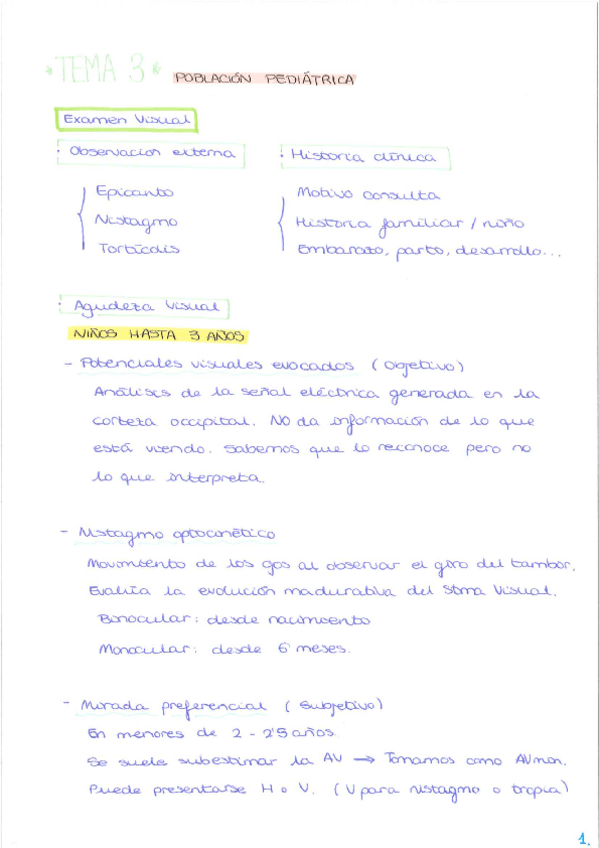 *TEMA 3* POBLACIÓN PEDIÁTRICA
Examen Visual
· Observación externa
Epicanto
Nistagmo
Tortícolis
· Historia clínica
Motivo consulta
Historia familiar / niño
Embarazo, parto, desarrollo...
· Agudeza visual
NIÑOS HASTA 3 AÑOS
- Potenciales visuales evocados (Objetivo)
Análisis de la señal eléctrica generada en la
corteza occipital. NO da información de lo que
está viendo. Sabemos que lo reconoce pero no
lo que interpreta.
- Nistagmo optocinético
Movimiento de los ojos al observar el giro del tambor.
Evalúa la evolución madurativa del stma Visual.
Binocular: desde nacimiento
Monocular: desde 6 meses.
- Mirada preferencial (Subjetivo)
En menores de 2 - 2'5 años.
Se suele subestimar la AV → Tomamos como AVmin.
Puede presentarse H o V. (V para nistagmo o tropia)
1.